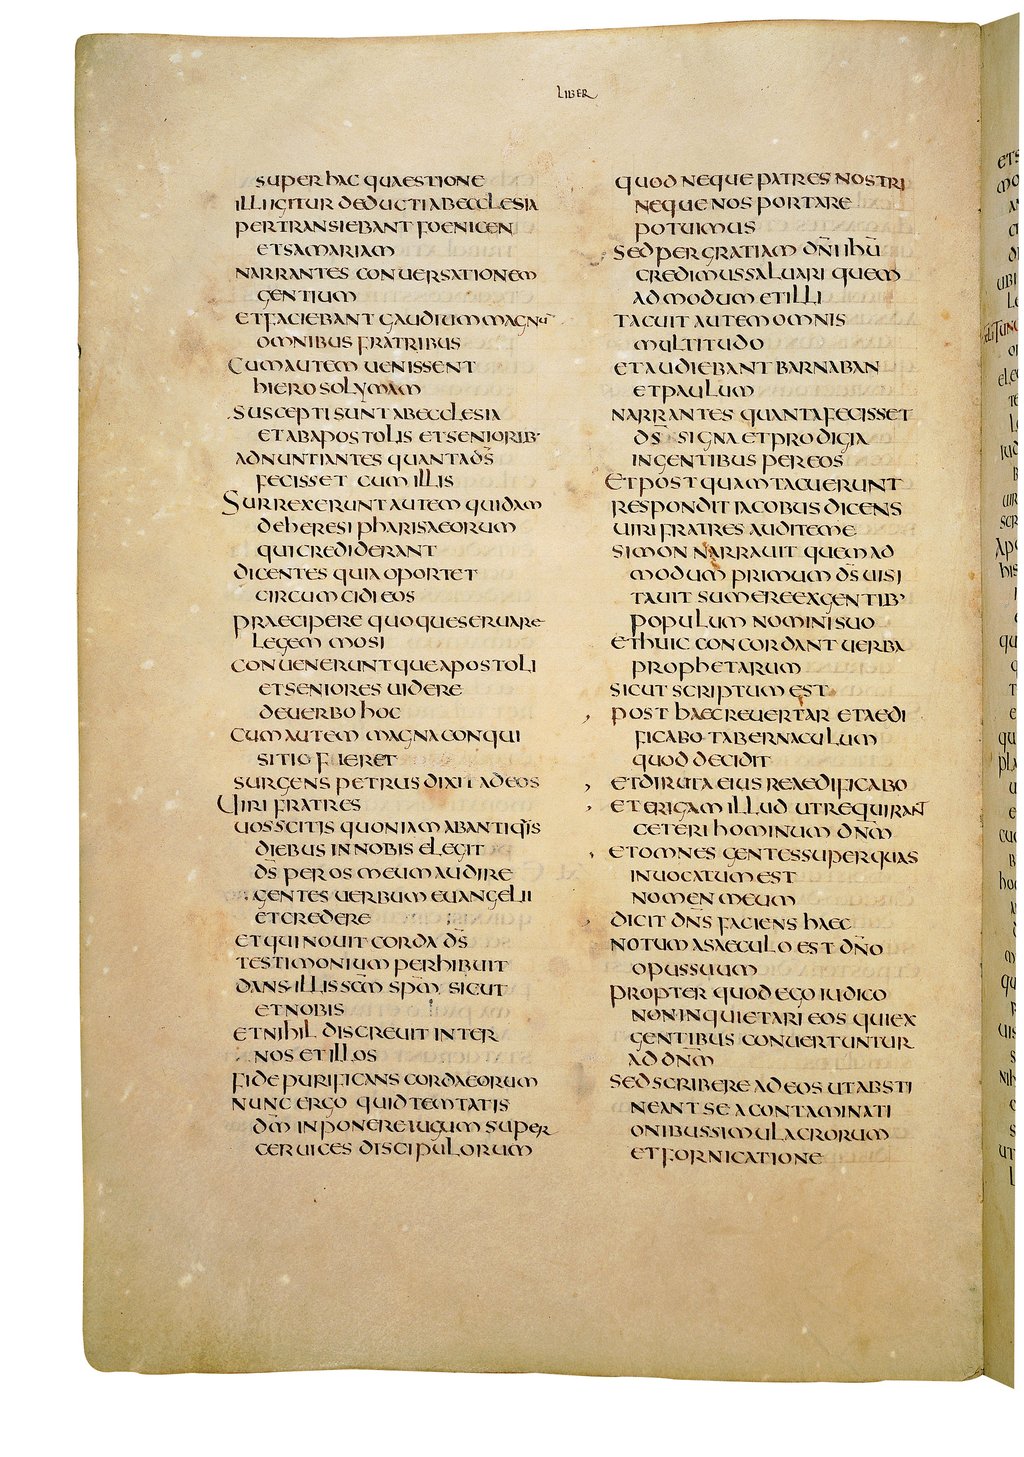 LIBER
SUPER HAC QUAESTIONE
ILLI IGITUR DEDUCTI AB ECCLESIA
PERTRANSIEBANT FOENICEN
ET SAMARIAM
NARRANTES CONUERSATIONEM
GENTIUM
ET FACIEBANT GAUDIUM MAGNU
OMNIBUS FRATRIBUS
CUM AUTEM UENISSENT
HIEROSOLYMAM
SUSCEPTI SUNT AB ECCLESIA
ET AB APOSTOLIS ET SENIORIB·
ADNUNTIANTES QUANTA D̅S̅
FECISSET CUM ILLIS
SURREXERUNT AUTEM QUIDAM
DE HERESI PHARISAEORUM
QUI CREDIDERANT
DICENTES QUIA OPORTET
CIRCUMCIDI EOS
PRAECIPERE QUOQUE SERUARE
LEGEM MOSI
CONUENERUNTQUE APOSTOLI
ET SENIORES UIDERE
DE UERBO HOC
CUM AUTEM MAGNA CONQUI
SITIO FIERET
SURGENS PETRUS DIXIT AD EOS
UIRI FRATRES
UOS SCITIS QUONIAM AB ANTIQ̅I̅S
DIEBUS IN NOBIS ELEGIT
D̅S̅ PER OS MEUM AUDIRE
GENTES UERBUM EUANGELII
ET CREDERE
ET QUI NOUIT CORDA D̅S̅
TESTIMONIUM PERHIBUIT
DANS ILLIS S̅C̅M̅ S̅P̅M̅ SICUT
ET NOBIS
ET NIHIL DISCREUIT INTER
NOS ET ILLOS
FIDE PURIFICANS CORDA EORUM
NUNC ERGO QUID TEMTATIS
D̅M̅ INPONERE IUGUM SUPER
CERUICES DISCIPULORUM
QUOD NEQUE PATRES NOSTRI
NEQUE NOS PORTARE
POTUIMUS
SED PER GRATIAM D̅N̅I̅ I̅H̅U̅
CREDIMUS SALUARI QUEM
AD MODUM ET ILLI
TACUIT AUTEM OMNIS
MULTITUDO
ET AUDIEBANT BARNABAN
ET PAULUM
NARRANTES QUANTA FECISSET
D̅S̅ SIGNA ET PRODIGIA
IN GENTIBUS PER EOS
ET POSTQUAM TACUERUNT
RESPONDIT IACOBUS DICENS
UIRI FRATRES AUDITE ME
SIMON NARRAUIT QUEM AD
MODUM PRIMUM D̅S̅ UISI
TAUIT SUMERE EX GENTIB'
POPULUM NOMINI SUO
ET HUIC CONCORDANT UERBA
PROPHETARUM
SICUT SCRIPTUM EST
POST HAEC REUERTAR ET AEDI
FICABO TABERNACULUM
QUOD DECIDIT
ET DIRUTA EIUS REAEDIFICABO
ET ERIGAM ILLUD UT REQUIRANT
CETERI HOMINUM D̅N̅M̅
ET OMNES GENTES SUPER QUAS
INUOCATUM EST
NOMEN MEUM
DICIT D̅N̅S̅ FACIENS HAEC
NOTUM A SAECULO EST D̅N̅O̅
OPUS SUUM
PROPTER QUOD EGO IUDICO
NON INQUIETARI EOS QUI EX
GENTIBUS CONUERTUNTUR
AD D̅N̅M̅
SED SCRIBERE AD EOS UT ABSTI
NEANT SE A CONTAMINATI
ONIBUS SIMULACRORUM
ET FORNICATIONE